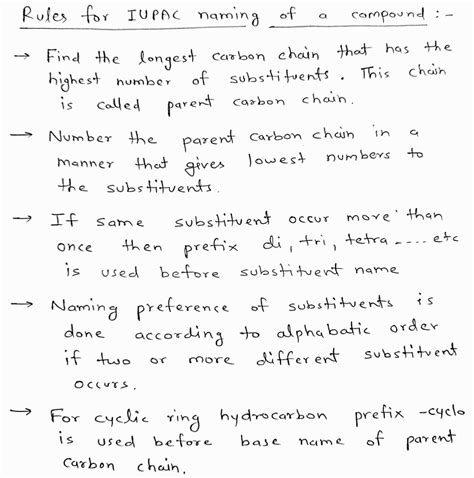 Rules for IUPAC naming of a compound :-
→ Find the longest carbon chain that has the
highest number of substituents. This chain
is called parent carbon chain.
→ Number the parent carbon chain in a
manner that gives lowest numbers to
the substituents.
→ If same substituent occur more than
once then prefix di, tri, tetra .... etc
is used before substituent name
→ Naming preference of substituents is
done according to alphabatic order
if two or more different substituent
occurs.
→ For cyclic ring hydrocarbon prefix -cyclo
is used before base name of parent
carbon chain.